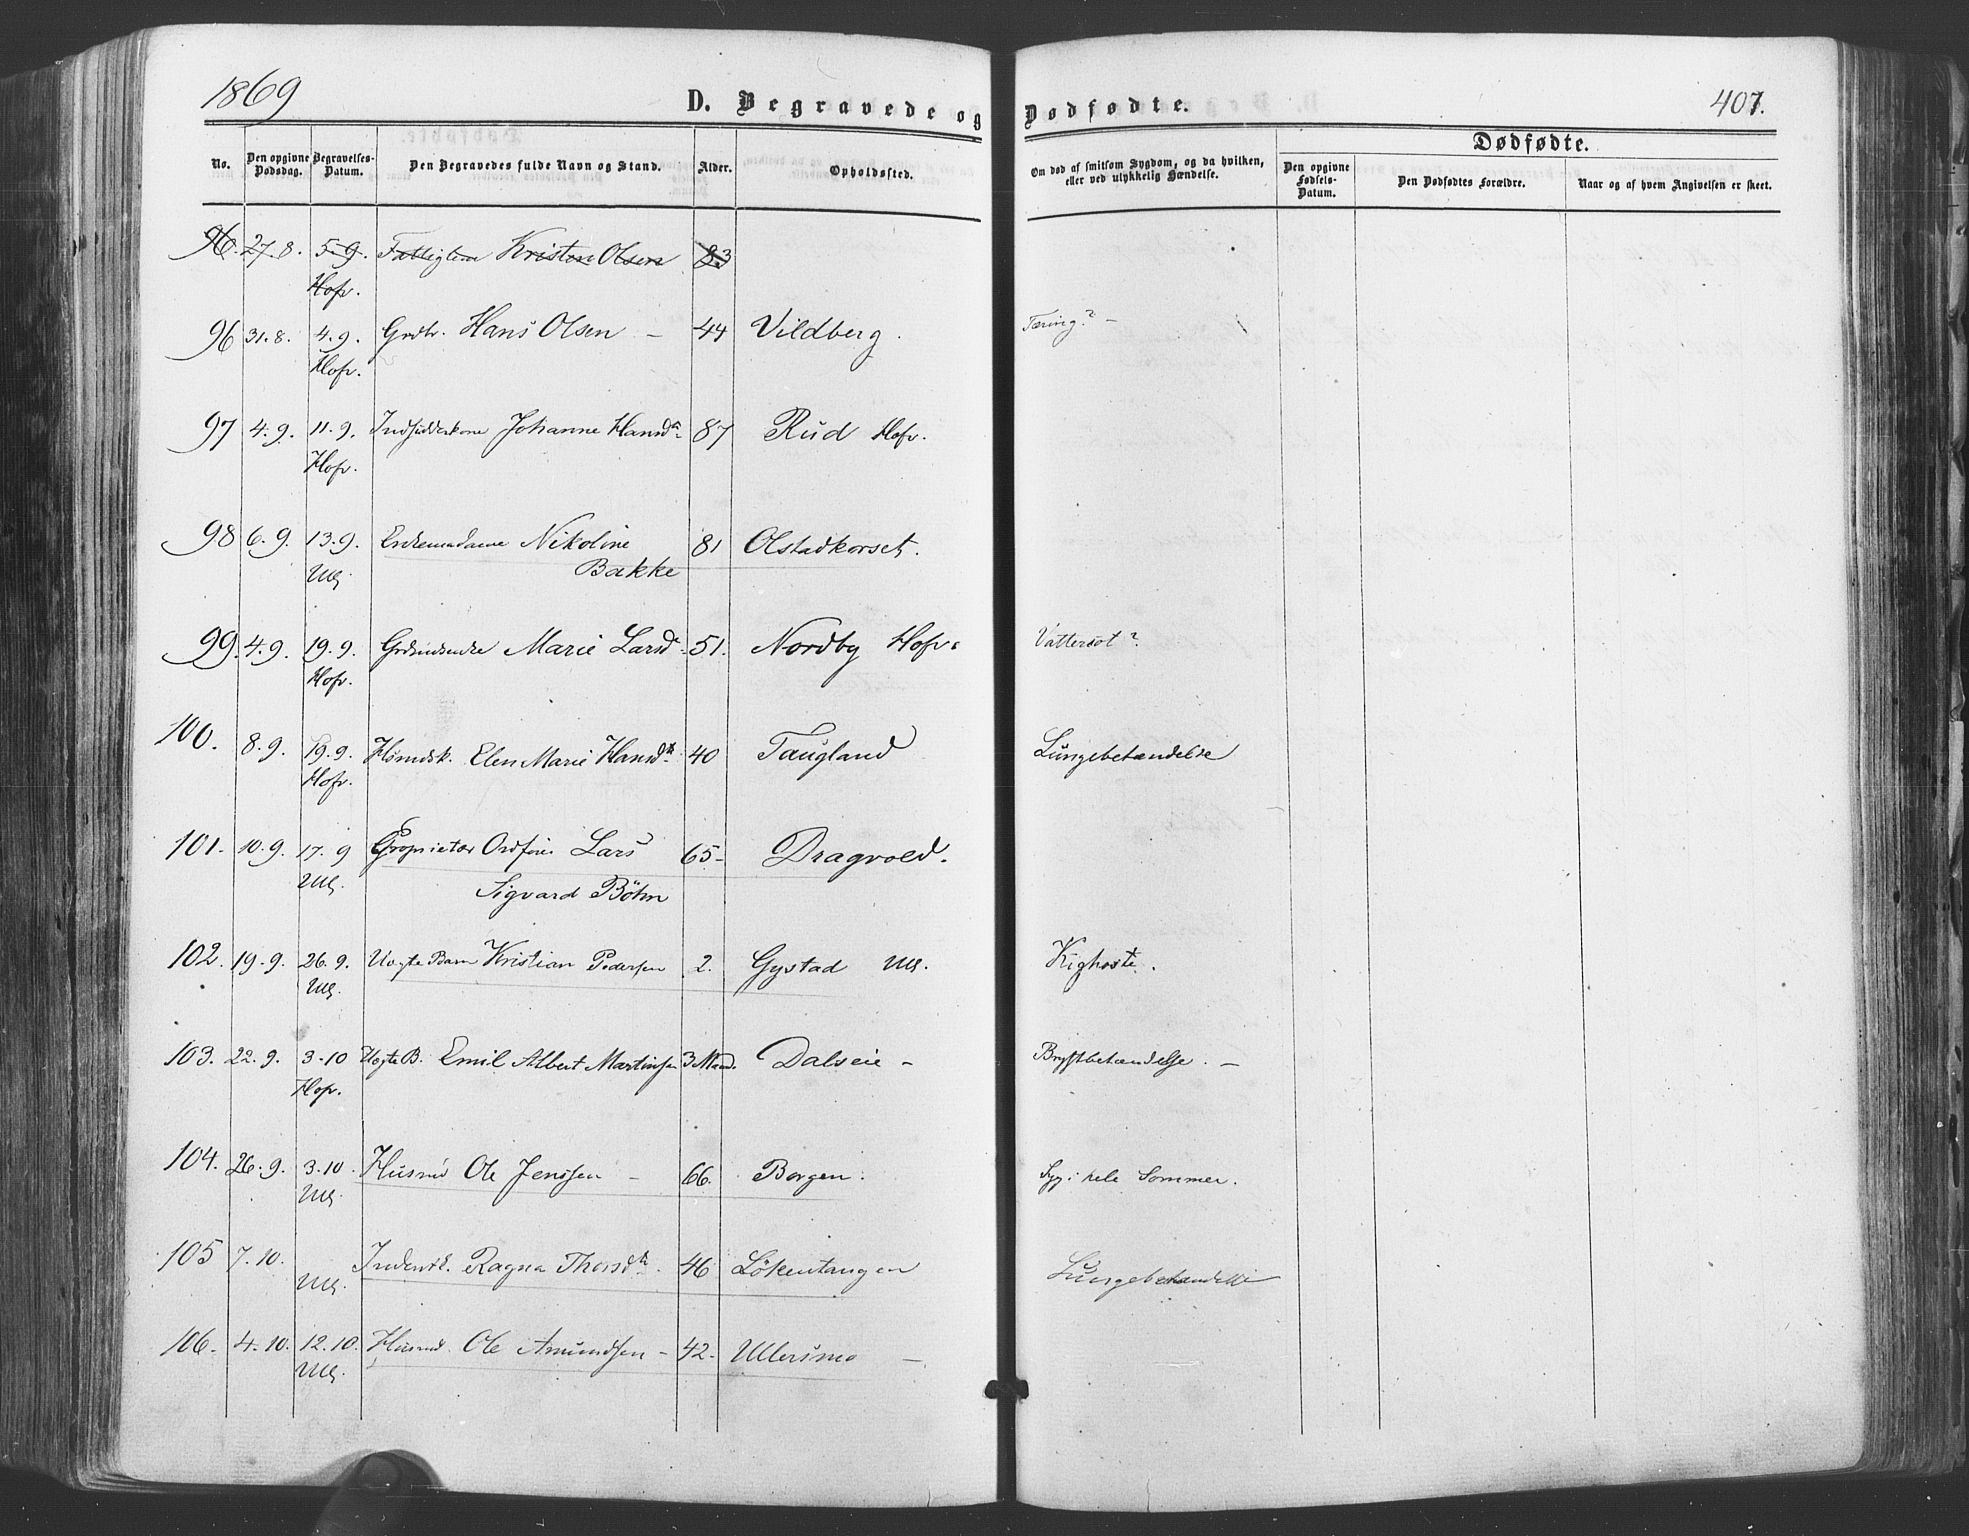 1869
D. Begravede og Dødfødte.
407.
Dødfødte.
No.
Den opgivne Dødsdag.
Begravelses-Datum.
Den Begravedes fulde Navn og Stand.
Alder.
Opholdssted.
Om død af smitsom Sygdom, og da hvilken, eller ved ulykkelig Hændelse.
Den opgivne Fødsels-Datum.
Den Dødfødtes Forældre.
Naar og af hvem Angivelsen er skeet.
96. 27.8. 5.9. Fattiglem Kristen Olsen 83
Hofv.
96 31.8. 4.9. Grdbr. Hans Olsen – 44 Vildberg. Tæring? –
Hofv.
97 4.9. 11.9. Indsidderkone Johanne Hansdr. 87 Rud Hofv.
Hofv.
98 6.9. 13.9. Enkemadame Nikoline 81 Olstadkorset.
Ull. Bakke
99. 4.9. 19.9. Marie Larsd. 51. Nordby Hofv. Vattersot?
Hofv.
100. 8.9. 19.9. Husmdsk. Elen Marie Hansdr. 40 Taugland Lungebetændelse
Hofv.
101. 10.9. 17.9 Proprietær Lars 65– Dragvold.
Ull. Sigvard Böhm
102. 19.9. 26.9. Uægte Barn Kristian Pedersen 2. Gystad Ull. Kighoste.
Ull.
103. 22.9. 3-10 Uægte B. Emil Albert Martinsen 3 Maan. Dalseie – Brystbetændelse. –
Hofv.
104. 26.9. 3.10. Husmd Ole Jenssen – 66. Borgen. Syg i hele Sommer.
Ull.
105 7.10. Ragna Thorsdr. 46 Lökentangen Lungebetændelse
Ull.
106. 4.10. 12.10. Husmd. Ole Amundsen – 42. Ullersmo –
Ull.